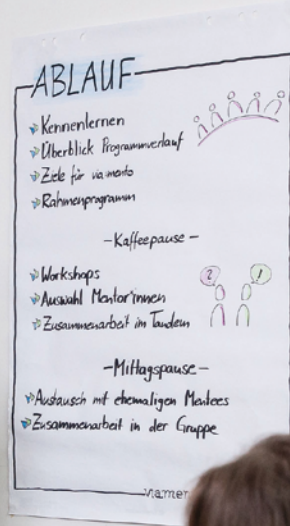 ABLAUF
Kennenlernen
Überblick Programmverlauf
Ziele für via mento
Rahmenprogramm
- Kaffeepause -
Workshops
Auswahl Mentor*innen
Zusammenarbeit im Tandem
? !
- Mittagspause -
Austausch mit ehemaligen Mentees
Zusammenarbeit in der Gruppe